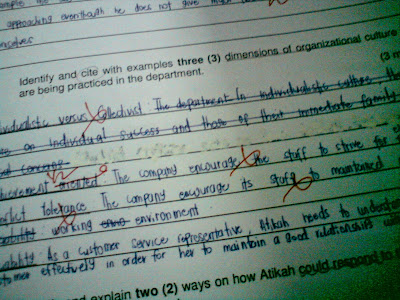 approaching eventhough he does not give much
themselves.
Identify and cite with examples three (3) dimensions of organizational culture
are being practiced in the department.
(3 m
dividualistic versus collectivist: The department in individualistic culture
on individual success and those of their immediate family
concept
achievement oriented: The company encourage the staff to strive for
conflict tolerance: The company encourage its staff to maintained
working environment.
As a customer service representative, Atikah needs to understand
customer effectively in order for her to maintain a good relationships
and explain two (2) ways on how Atikah could respond to